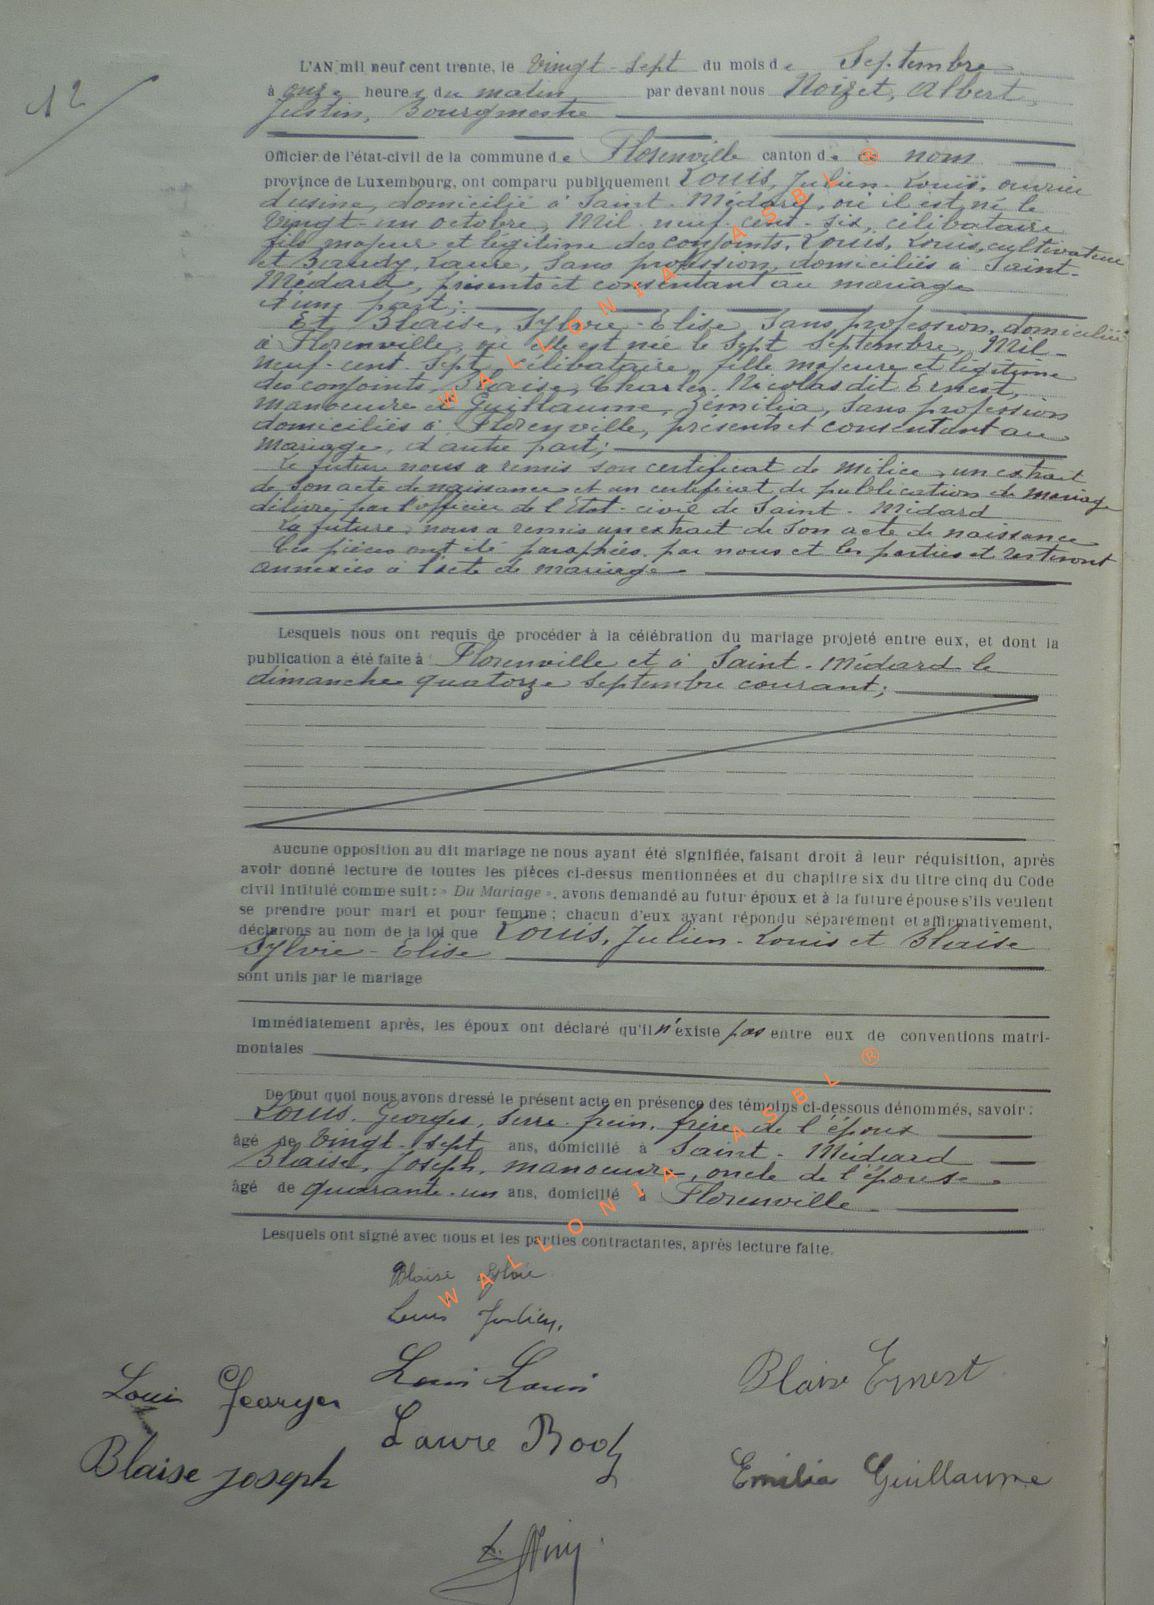 12
L'AN mil neuf cent trente, le Vingt-sept du mois de Septembre
à onze heures du matin par devant nous Noizet, Albert,
Justin, Bourgmestre
Officier de l'état-civil de la commune de Florenville canton de ce nom
province de Luxembourg, ont comparu publiquement Louis, Julien-Louis, ouvrier
d'usine, domicilié à Saint-Médard, où il est né le
Vingt-un octobre, Mil neuf-cent-six, célibataire
fils majeur et légitime des conjoints, Louis, Louis, cultivateur
et Baudy, Laure, Sans profession, domiciliés à Saint-
Médard, présents et consentant au mariage
d'une part;
Et Blaise, Sylvie-Elise, Sans profession, domiciliée
à Florenville, où elle est née le Sept Septembre, Mil-
neuf-cent-Sept, célibataire, fille majeure et légitime
des conjoints, Blaise, Charles-Nicolas dit Ernest,
manoeuvre et Guillaume, Zémilia, Sans profession
domiciliés à Florenville, présents et consentant au
mariage, d'autre part;
Le futur nous a remis son certificat de milice, un extrait
de son acte de naissance et un certificat de publication de mariage
délivré par l'officier de l'Etat-civil de Saint-Médard
La future nous a remis un extrait de son acte de naissance
Ces pièces ont été paraphées par nous et les parties et resteront
annexées à l'acte de mariage
Lesquels nous ont requis de procéder à la célébration du mariage projeté entre eux, et dont la
publication a été faite à Florenville et à Saint-Médard le
dimanche quatorze septembre courant;
Aucune opposition au dit mariage ne nous ayant été signifiée, faisant droit à leur réquisition, après
avoir donné lecture de toutes les pièces ci-dessus mentionnées et du chapitre six du titre cinq du Code
civil intitulé comme suit: « Du Mariage », avons demandé au futur époux et à la future épouse s'ils veulent
se prendre pour mari et pour femme; chacun d'eux ayant répondu séparément et affirmativement,
déclarons au nom de la loi que Louis, Julien-Louis et Blaise
Sylvie-Elise
sont unis par le mariage
Immédiatement après, les époux ont déclaré qu'il n'existe pas entre eux de conventions matri-
moniales
De tout quoi nous avons dressé le présent acte en présence des témoins ci-dessous dénommés, savoir:
Louis, Georges, Serre-frein, frère de l'époux
âgé de Vingt-sept ans, domicilié à Saint-Médard
Blaise, Joseph, manoeuvre, oncle de l'épouse
âgé de quarante-un ans, domicilié à Florenville
Lesquels ont signé avec nous et les parties contractantes, après lecture faite.
Blaise Sylvie
Louis Julien.
Louis Georges
Louis Louis
Blaise Ernest
Laure Body
Blaise Joseph
Emilia Guillaume
WALLONIA ASBL ®
WALLONIA ASBL ®